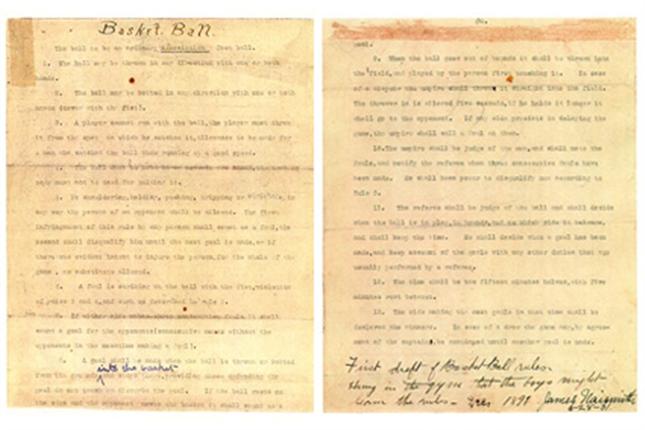 Basket Ball.
The ball to be an ordinary Association foot ball.
1. The ball may be thrown in any direction with one or both
hands.
2. The ball may be batted in any direction with one or both
hands (never with the fist).
3. A player cannot run with the ball, the player must throw
it from the spot on which he catches it, allowance to be made for
a man who catches the ball when running at a good speed.
4. The ball must be held
body must not be used for holding it.
5. No shouldering, holding, pushing, tripping or striking, in
any way the person of an opponent shall be allowed. The first
infringement of this rule by any person shall count as a foul, the
second shall disqualify him until the next goal is made, or if
there was evident intent to injure the person, for the whole of the
game, no substitute allowed.
6. A foul is striking at the ball with the fist, violation
of rules 3 and 4, and such as described in rule 5.
7. If either side makes three consecutive fouls it shall
count a goal for the opponents (consecutive means without the
opponents in the meantime making a foul).
8. A goal shall be made when the ball is thrown or batted
into the basket
from the grounds and stays there, providing those defending the
goal do not touch or disturb the goal. If the ball rests on
the edge and the opponent moves the basket it shall count as a
goal.
9. When the ball goes out of bounds it shall be thrown into
the field, and played by the person first touching it. In case
of a dispute the umpire shall throw it straight into the field.
The thrower in is allowed five seconds, if he holds it longer it
shall go to the opponent. If any side persists in delaying the
game, the umpire shall call a foul on them.
10. The umpire shall be judge of the men, and shall note the
fouls, and notify the referee when three consecutive fouls have
been made. He shall have power to disqualify men according to
Rule 5.
11. The referee shall be judge of the ball and shall decide
when the ball is in play, in bounds, and to which side it belongs,
and shall keep the time. He shall decide when a goal has been
made, and keep account of the goals with any other duties that are
usually performed by a referee.
12. The time shall be two fifteen minutes halves, with five
minutes rest between.
13. The side making the most goals in that time shall be
declared the winners. In case of a draw the game may, by agree-
ment of the captains, be continued until another goal is made.
First draft of Basket Ball rules.
Hung in the gym that the boys might
learn the rules - Dec 1891 James Naismith
6-28-31